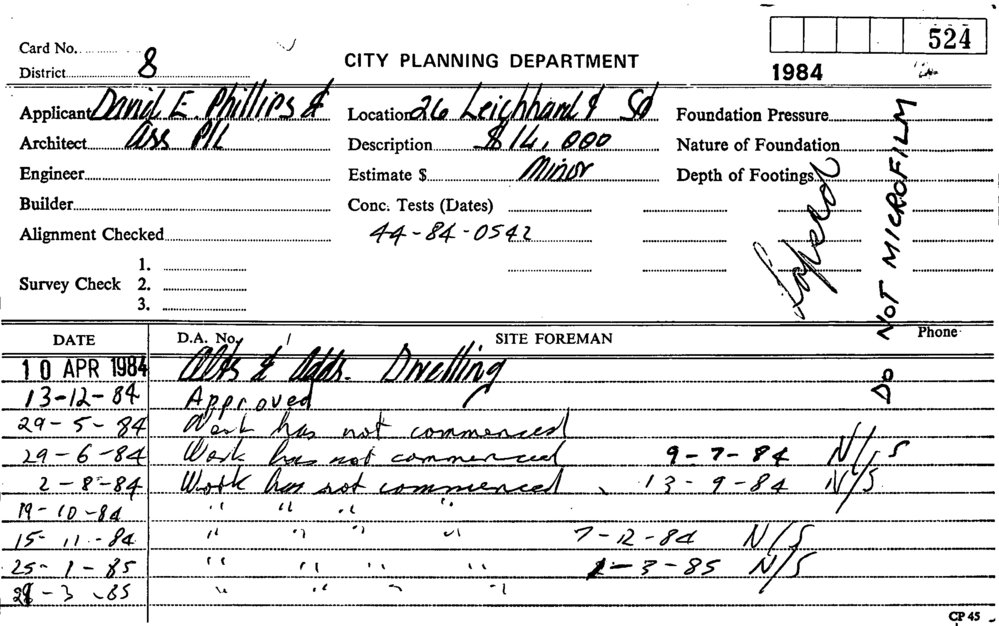 524
Card No.
CITY PLANNING DEPARTMENT
District 8
1984
Applicant David E Phillips & Location 26 Leichhardt St Foundation Pressure
Architect Ass P/L Description $14,000 Nature of Foundation
Engineer Estimate $ Minor Depth of Footings
Builder Conc. Tests (Dates)
Alignment Checked 44-84-0542
1.
Survey Check 2.
3.
DO NOT MICROFILM
DATE D.A. No. / SITE FOREMAN Phone
10 APR 1984 Alts & Adds. Dwelling
13-12-84 Approved
29-5-84 Work has not commenced
29-6-84 Work has not commenced 9-7-84 N/S
2-8-84 Work has not commenced 13-9-84 N/S
19-10-84 " " " "
15-11-84 " " " " 7-12-84 N/S
25-1-85 " " " " 1-3-85 N/S
29-3-85 " " " "
CP 45